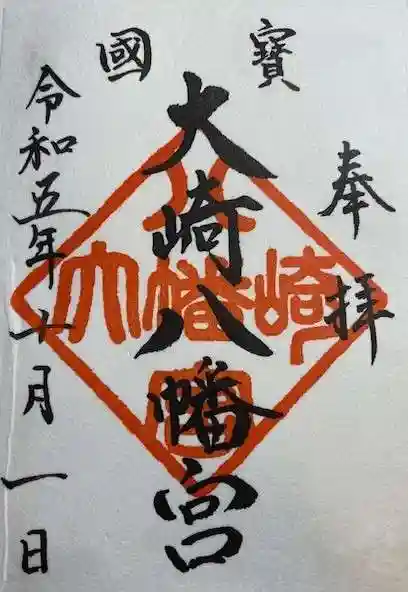 國寳
奉拝
大崎八幡宮
令和五年十月一日
八
大幡崎
宮